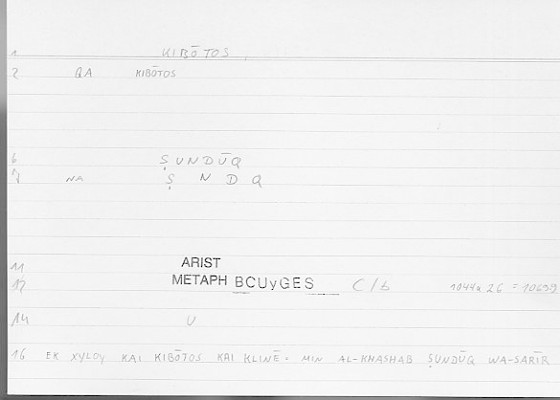 1 KIBŌTOS
2 QA KIBŌTOS
6 ṢUNDŪQ
7 NA Ṣ N D Q
11 ARIST
12 METAPH BCUyGES C/b 1044a 26 =
14 U
16 EK XYLOY KAI KIBŌTOS KAI KLINĒ · MIN AL-KHASHAB ṢUNDŪQ WA-SARĪR